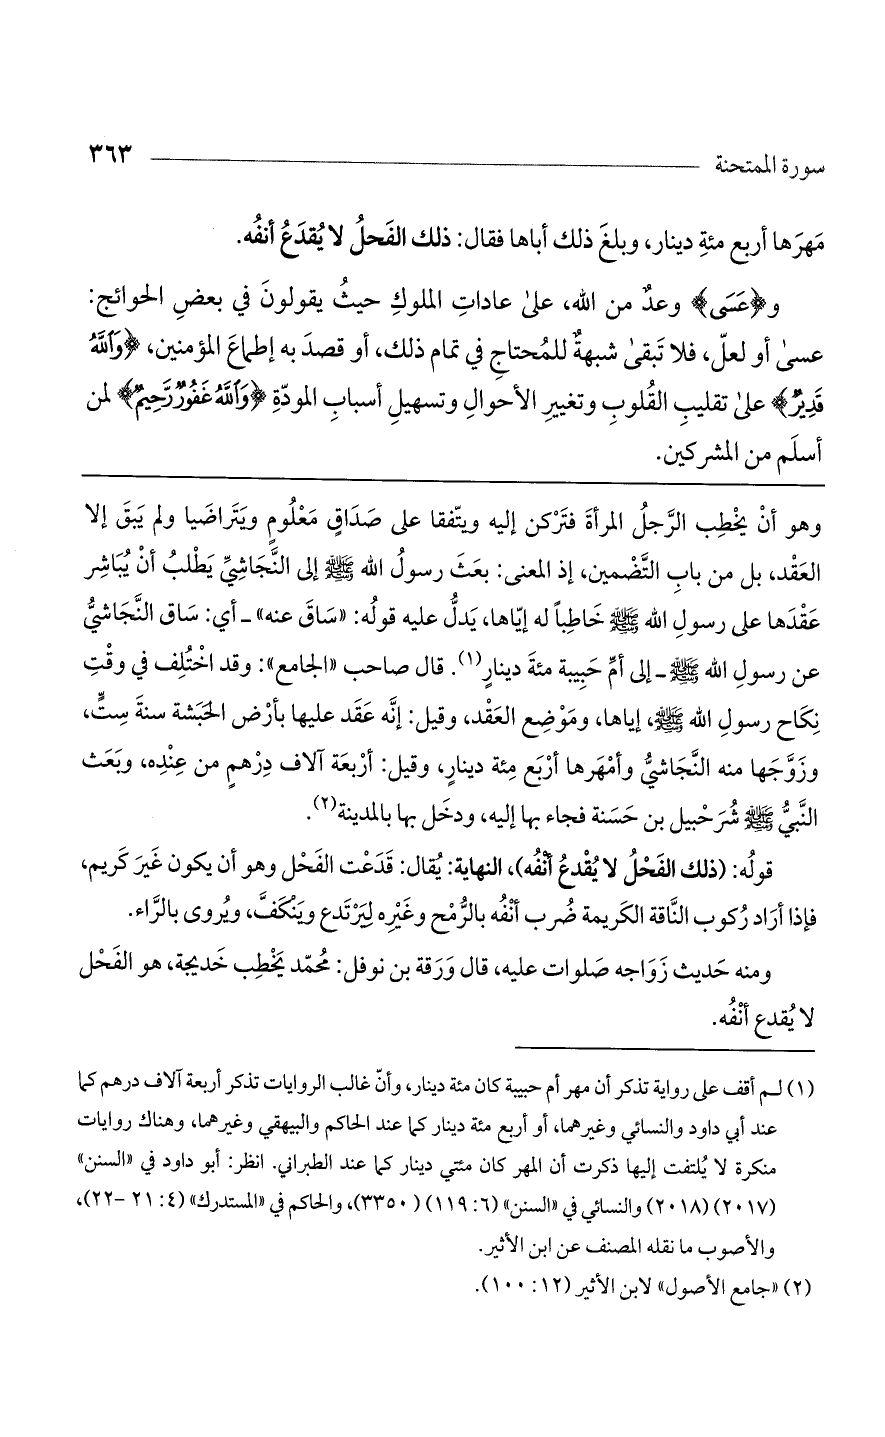 سورة الممتحنة ٣٦٣
مَهرَها أربع مئةِ دينار، وبلغَ ذلك أباها فقال: ذلك الفَحلُ لا يُقدَعُ أنفُه.
و﴿عَسَى﴾ وعدٌ من الله، علىٰ عاداتِ الملوكِ حيثُ يقولونَ في بعضِ الحوائج:
عسىٰ أو لعلّ، فلا تَبقىٰ شبهةٌ للمُحتاجِ في تمام ذلك، أو قصدَ به إطماعَ المؤمنين، ﴿وَٱللَّهُ
قَدِيرٌ﴾ علىٰ تقليبِ القُلوبِ وتغييرِ الأحوالِ وتسهيلِ أسبابِ المودّةِ ﴿وَٱللَّهُ غَفُورٌ رَّحِيمٌ﴾ لمن
أسلَم من المشركين.
وهو أنْ يخْطِب الرَّجلُ المرأةَ فتَرْكن إليه ويتّفقا على صَدَاقٍ مَعْلُومٍ ويَتَراضَيا ولم يَبقَ إلا
العَقْد، بل من بابِ التَّضْمين، إذ المعنى: بعَثَ رسولُ الله ﷺ إلى النَّجَاشِيِّ يَطْلبُ أنْ يُبَاشِر
عَقْدَها على رسولِ الله ﷺ خَاطِباً له إيّاها، يَدلُّ عليه قولُه: «سَاقَ عنه» ـ أي: سَاق النَّجاشيُّ
عن رسولِ الله ﷺ ـ إلى أمِّ حَبِيبة مئةَ دينارٍ(١). قال صاحب «الجامع»: وقد اخْتُلِف في وقْتِ
نِكَاح رسولِ الله ﷺ، إياها، ومَوْضِع العَقْد، وقيل: إنَّه عَقَد عليها بأرْض الحَبَشة سنةَ سِتٍّ،
وزَوَّجَها منه النَّجاشيُّ وأمْهَرها أرْبَع مِئة دينارٍ، وقيل: أرْبعَة آلاف دِرْهمٍ من عِنْدِه، وبَعَث
النَّبيُّ ﷺ شُرَحْبيل بن حَسَنة فجاء بها إليه، ودخَل بها بالمدينة(٢).
قولُه: (ذلك الفَحْلُ لا يُقْدعُ أنْفُه)، النهاية: يُقال: قَدَعْت الفَحْل وهو أن يكون غَيرَ كَريم،
فإذا أرَاد رُكوب النَّاقة الكَريمة ضُرب أنْفُه بالرُّمْح وغَيْرِه لِيَرْتَدع ويَنْكَفَّ، ويُروى بالرَّاء.
ومنه حَديث زَوَاجه صَلوات عليه، قال وَرَقة بن نوفل: مُحمّد يَخْطِب خَديجة، هو الفَحْل
لا يُقدع أنْفُه.
(١) لم أقف على رواية تذكر أن مهر أم حبيبة كان مئة دينار، وأنّ غالب الروايات تذكر أربعة آلاف درهم كما
عند أبي داود والنسائي وغيرهما، أو أربع مئة دينار كما عند الحاكم والبيهقي وغيرهما، وهناك روايات
منكرة لا يُلتفت إليها ذكرت أن المهر كان مئتي دينار كما عند الطبراني. انظر: أبو داود في «السنن»
(٢٠١٧) (٢٠١٨) والنسائي في «السنن» (٦: ١١٩) (٣٣٥٠)، والحاكم في «المستدرك» (٤: ٢١ -٢٢)،
والأصوب ما نقله المصنف عن ابن الأثير.
(٢) «جامع الأصول» لابن الأثير (١٢: ١٠٠).